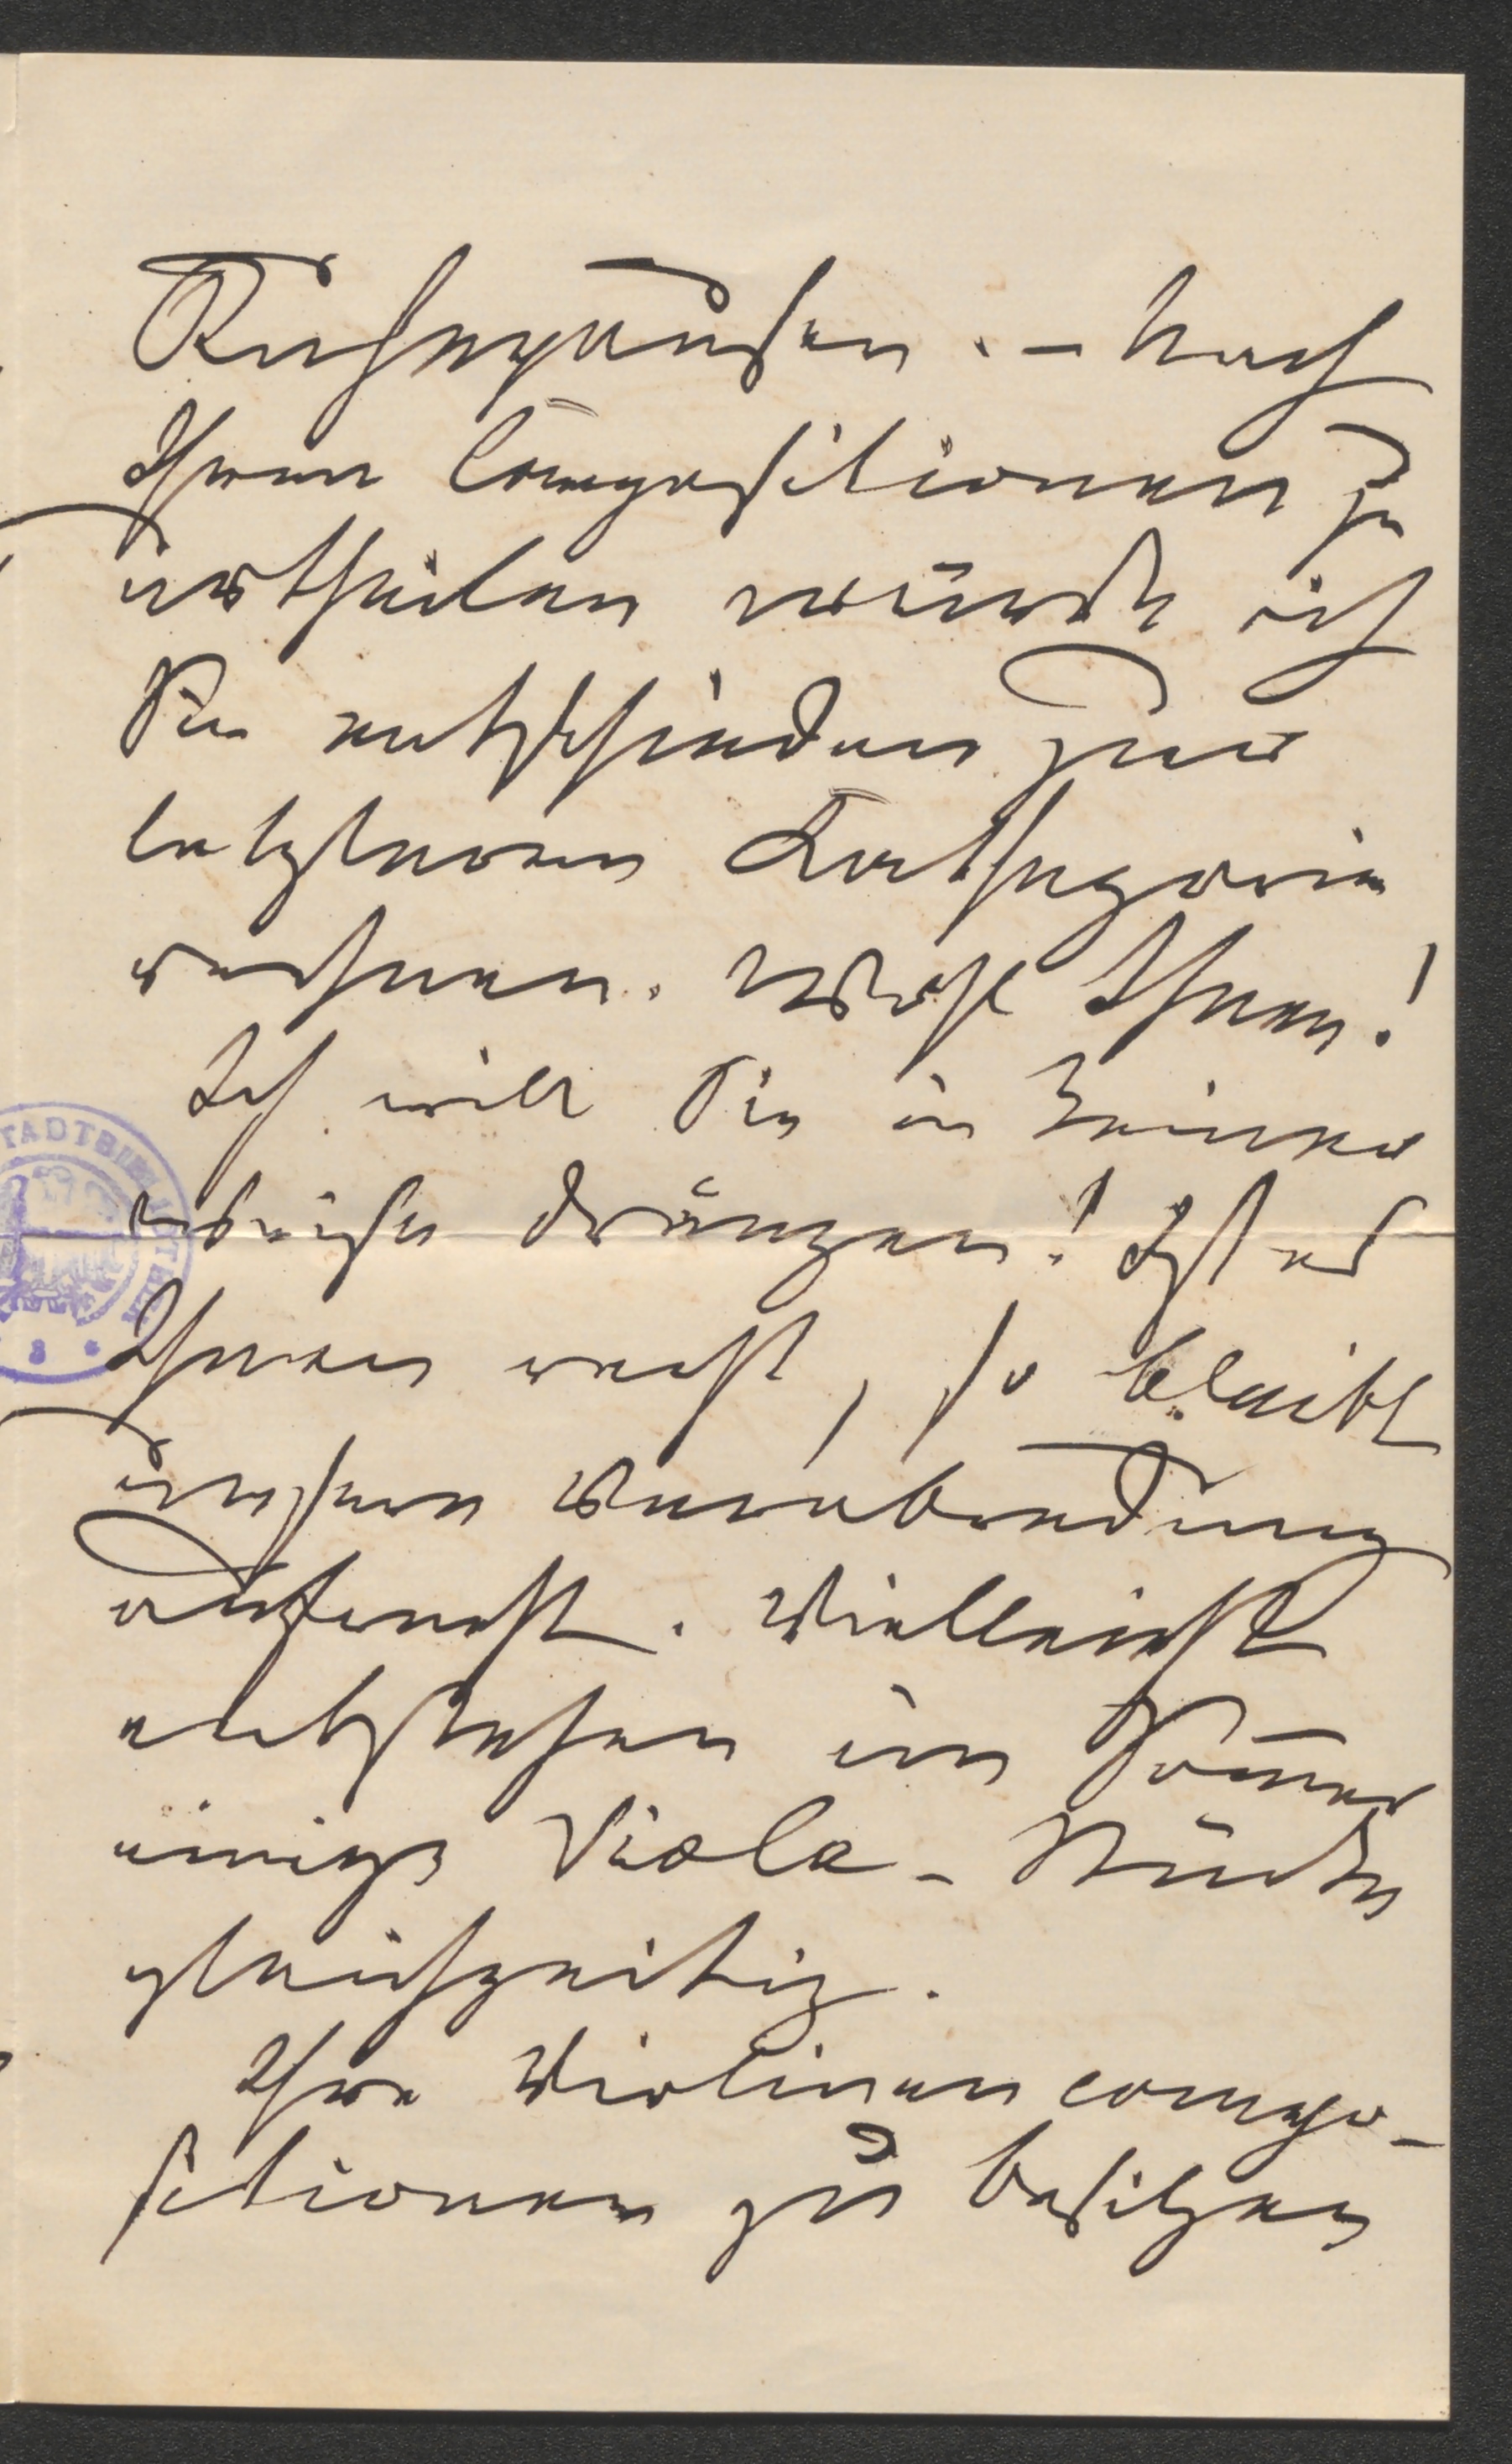 Ruhepausen. – Nach
Ihren Compositionen zu
urtheilen würde ich
Sie entschieden zur
letzteren Kathegorie
rechnen. Wohl Ihnen!
Ich will Sie in keiner
Weise drängen! Ist es
Ihnen recht, so bleibt
unsere Verabredung
aufrecht. Vielleicht
entstehen im Somer
einige Viola-Stücke
gleichzeitig.
Ihre Violinen compo-
sitionen zu besitzen